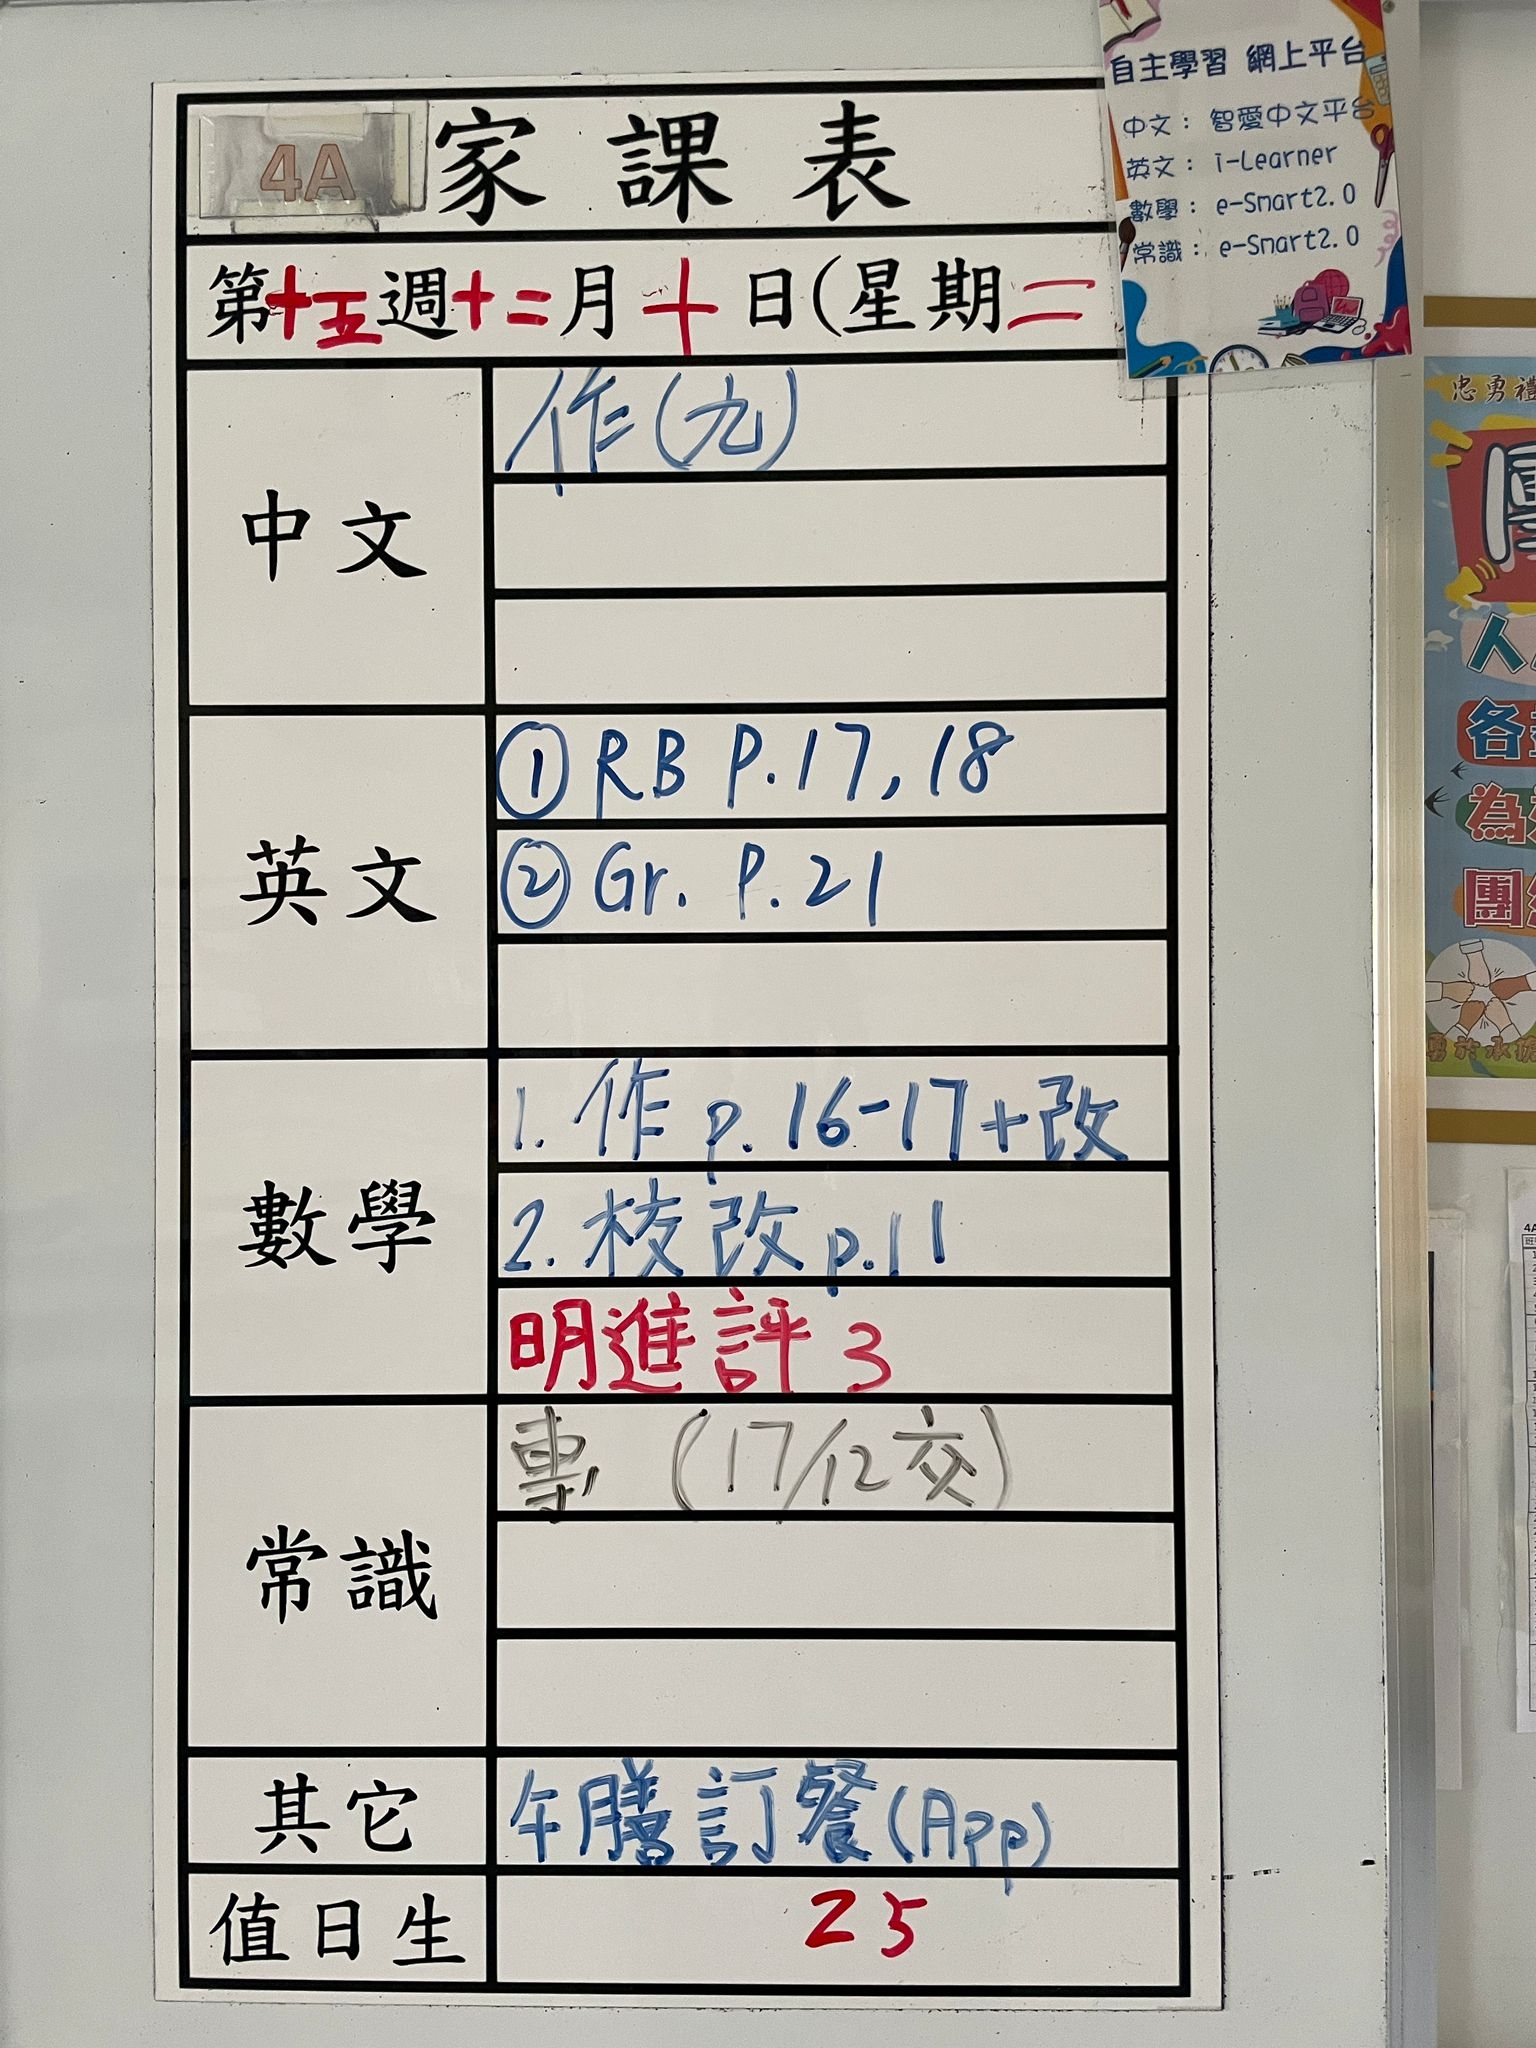 4A 家課表
自主學習 網上平台
中文： 智愛中文平台
英文： i-Learner
數學： e-Smart2.0
常識： e-Smart2.0
第十五週十二月十日(星期二
中文
作(九)
英文
① RB P.17, 18
② Gr. P.21
數學
1. 作 p. 16-17+改
2. 校改 p.11
明進評 3
常識
專 (17/12 交)
其它
午膳訂餐(App)
值日生
25
忠勇禮
人
各
為
團
勇於承擔
4A